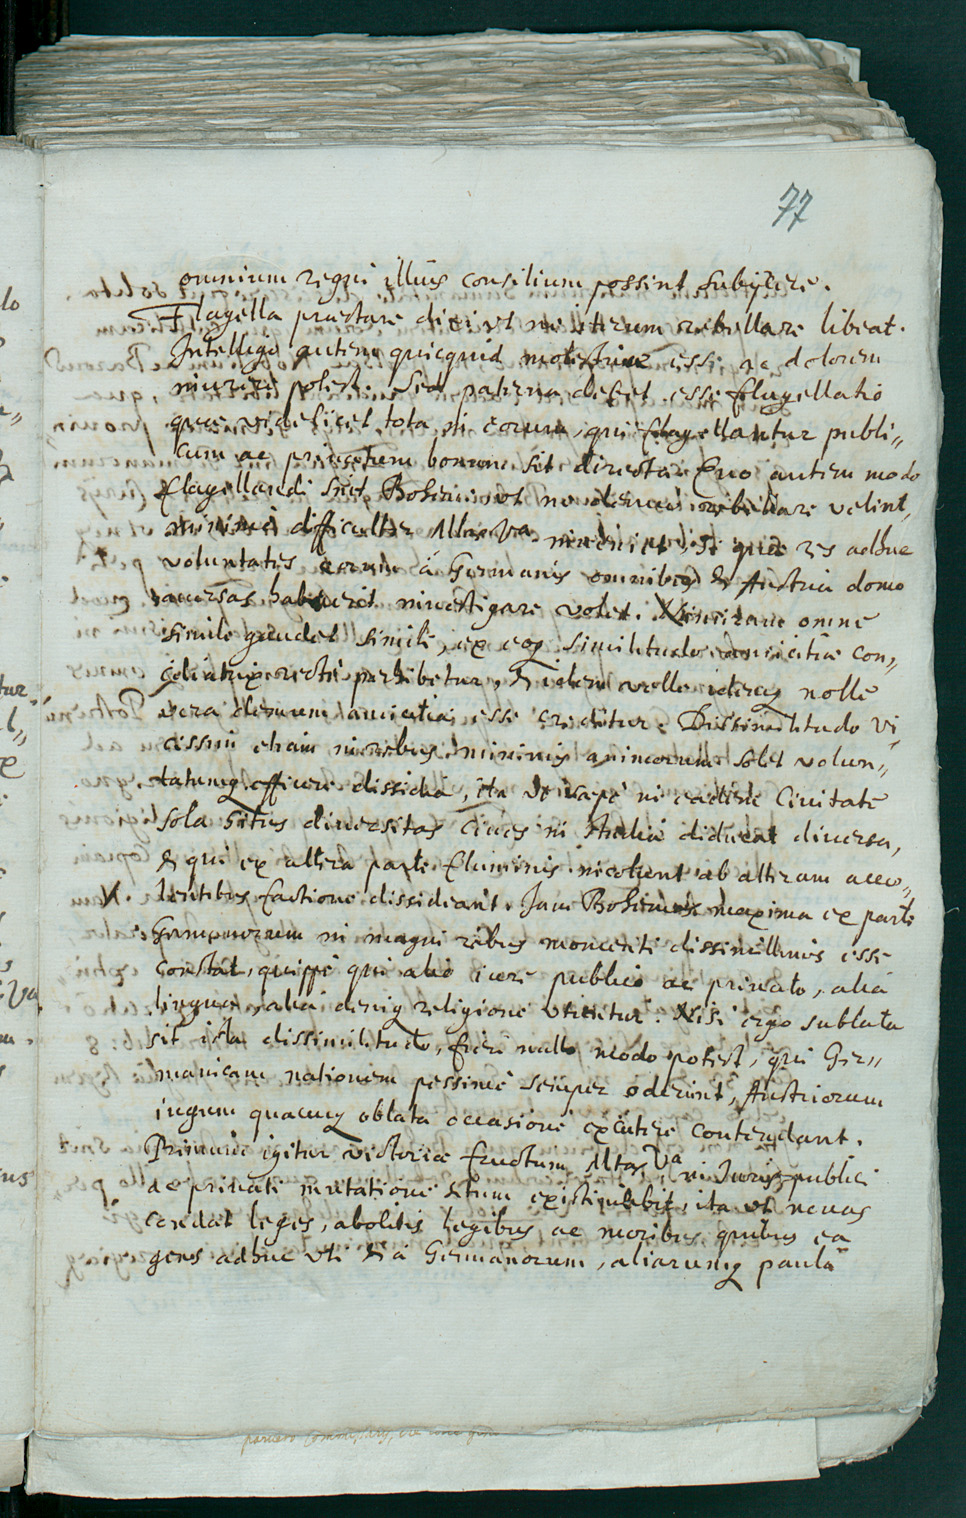 77
omnium regni illius consilium possint subijcere.
Flagella praestare dici ut ne iterum rebellare libeat.
Intelligo autem quicquid molestiae esse ac dolorem
inurere potest. Sed paterna debet esse flagellatio
quae videlicet tota in eorum, qui flagellantur publi„
cum ac privatum bonum sit directa. Quo autem modo
flagellandi sint Bohemi ut ne denuo rebellare velint,
minime difficulter Mtas Va. inveniet, si quae res adhuc
voluntates eorum à Germanis omnibus & Austria domo
aversas habuerit investigare volet. Nimirum omne
simile gaudet simili, ex eoq similitudo amicitiae con„
ciliatrix recte perhibetur, & idem velle idemq nolle
vera demum amicitia esse creditur. Dissimilitudo vi„
cissim etiam in rebus minimis animorum solet volun„
tatumq efficere dissidia, ita ut saepe in eadem Civitate
sola situs diversitas Cives in studia diducat diversa,
& qui ex altera parte fluminis incolunt ab alteram acco„
lentibus factione dissideant. Jam Bohemos maxima ex parte
Germanorum in magni rebus momenti dissimillimos esse
constat, quippe qui alio iure publico ac privato, alia
lingua, alia deniq religione utuntur. Nisi ergo sublata
sit ista dissimilitudo, fieri nullo modo potest, qui Ger„
manicam nationem pessime semper oderint, Austriorum
iugum quacunq oblata occasione excutere contendant.
Primum igitur victoriae fructum Mtas Va in Juris publici
ac privati mutatione situm existimabit, ita ut novas
condat leges, abolitis legibus ac moribus quibus ea
gens adhuc uti & à Germanorum, aliarumq paula